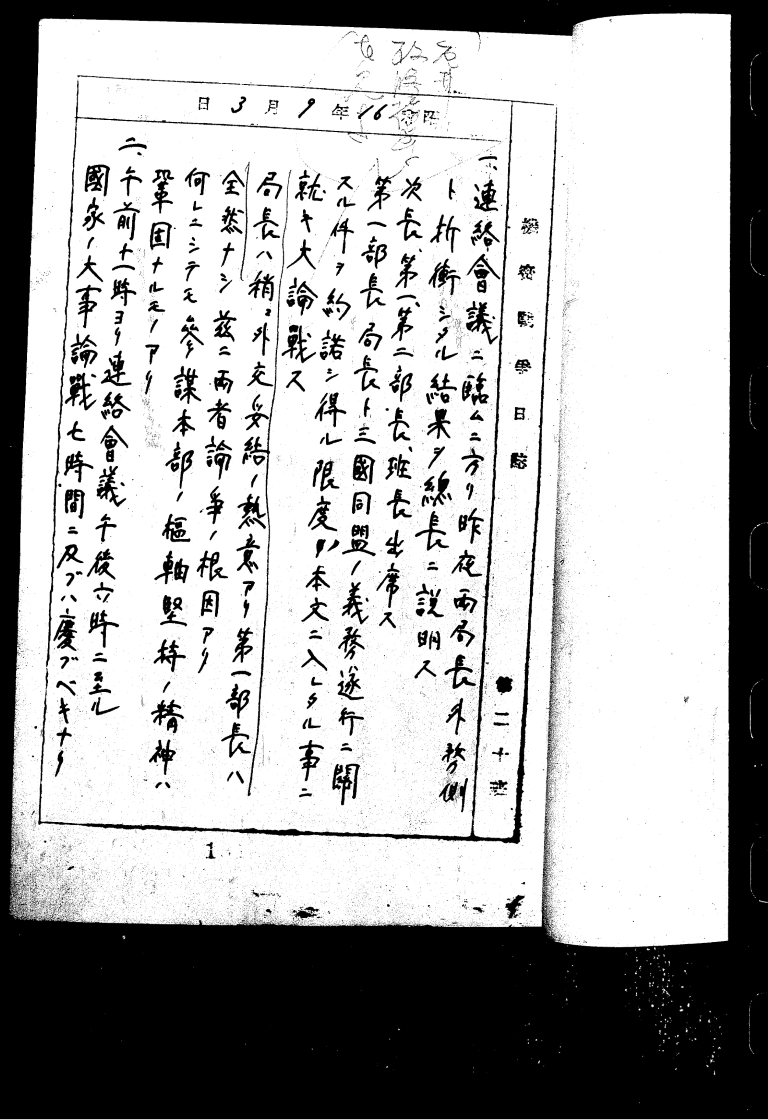 機密戰爭日誌
第二十班
昭 16 年 9 月 3 日
一、連絡會議ニ臨ムニ方リ昨夜両局長外務側
ト折衝シタル結果ヲ總長ニ説明ス
次長、第一、第二部長、班長出席ス
第一部長局長ト三國同盟ノ義務遂行ニ關
スル件ヲ約諾シ得ル限度ヲ本文ニ入レタル事ニ
就キ大論戰ス
局長ハ稍々外交妥結ノ熱意アリ第一部長ハ
全然ナシ茲ニ両者論爭ノ根因アリ
何レニシテモ參謀本部ノ樞軸堅持ノ精神ハ
鞏固ナルモノアリ
二、午前十一時ヨリ連絡會議午後六時ニ至ル
國家ノ大事論戰七時間ニ及ブハ慶ブベキナリ
1